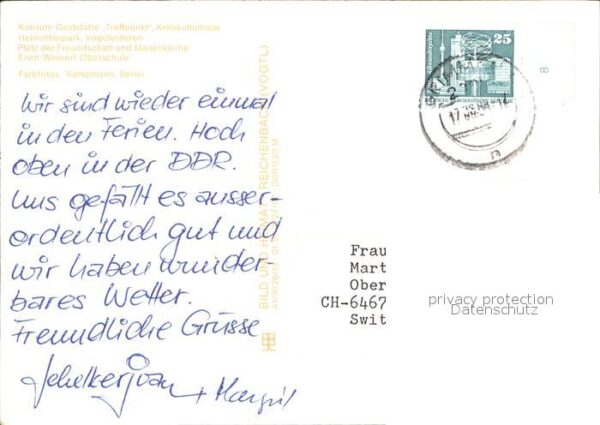 Konsum-Gaststätte „Treffpunkt“, Kreiskulturhaus
Heimattierpark, Vogelvolieren
Platz der Freundschaft und Marienkirche
Erich-Weinert-Oberschule
Farbfotos: Kampmann, Berlin
Wir sind wieder einmal
in den Ferien. Hoch
oben in der DDR.
Uns gefällt es ausser-
ordentlich gut und
wir haben wunder-
bares Wetter.
Freundliche Grüsse
+ Margrit
BILD UND HEIMAT REICHENBACH (VOGTL)
25
8
Frau
Mart
Ober
CH-6467
Swit
privacy protection
Datenschutz